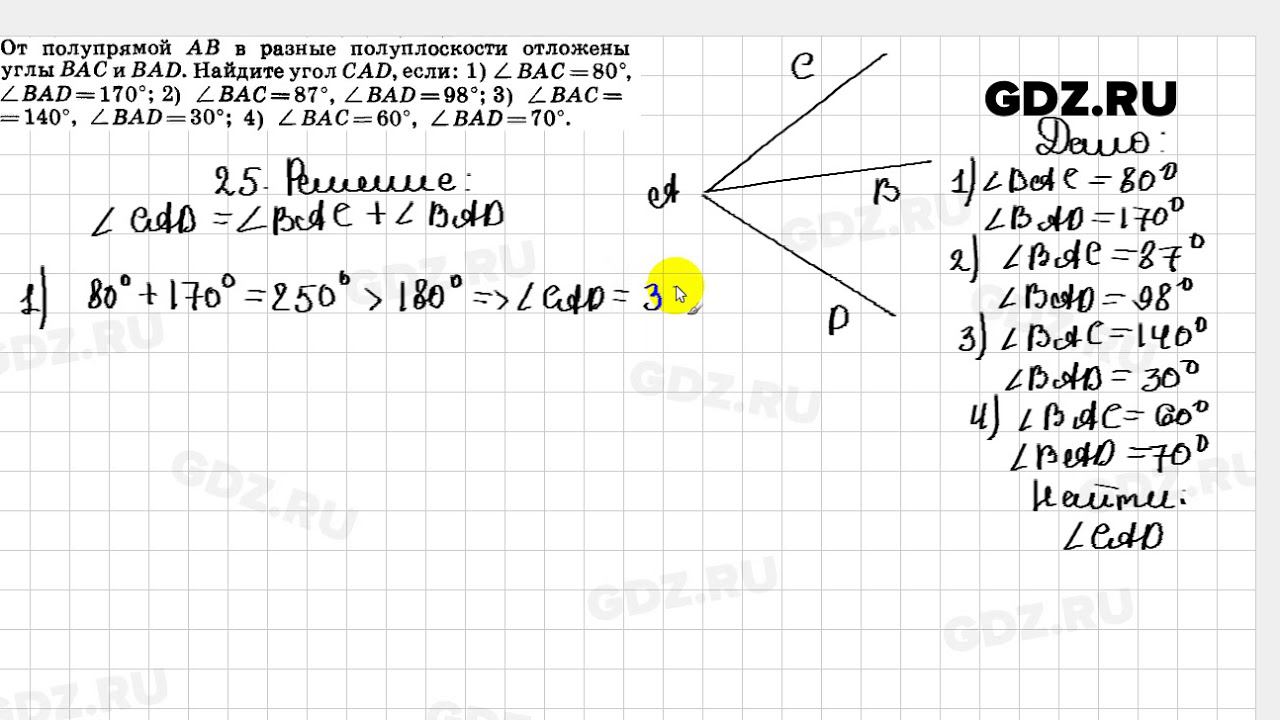 От полупрямой AB в разные полуплоскости отложены
углы BAC и BAD. Найдите угол CAD, если: 1) ∠ BAC = 80°,
∠ BAD = 170°; 2) ∠ BAC = 87°, ∠ BAD = 98°; 3) ∠ BAC =
= 140°, ∠ BAD = 30°; 4) ∠ BAC = 60°, ∠ BAD = 70°.
25. Решение:
∠ CAD = ∠ BAC + ∠ BAD
1) 80° + 170° = 250° > 180° => ∠ CAD = 3
C
A
B
D
GDZ.RU
Дано:
1) ∠ BAC = 80°
∠ BAD = 170°
2) ∠ BAC = 87°
∠ BAD = 98°
3) ∠ BAC = 140°
∠ BAD = 30°
4) ∠ BAC = 60°
∠ BAD = 70°
Найти:
∠ CAD
GDZ.RU
GDZ.RU
GDZ.RU
GDZ.RU
GDZ.RU
GDZ.RU
GDZ.RU
GDZ.RU